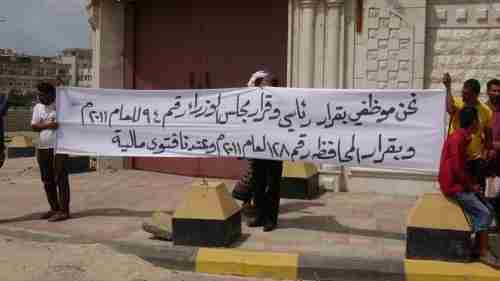 نحن موظفي بقرار رئاسي وقرار مجلس لوزراء رقم ٩٤ للعام ٢٠١١م
وبقرار المحافظه رقم ١٢٨ لعام ٢٠١١م وعندنا فتوى مالية